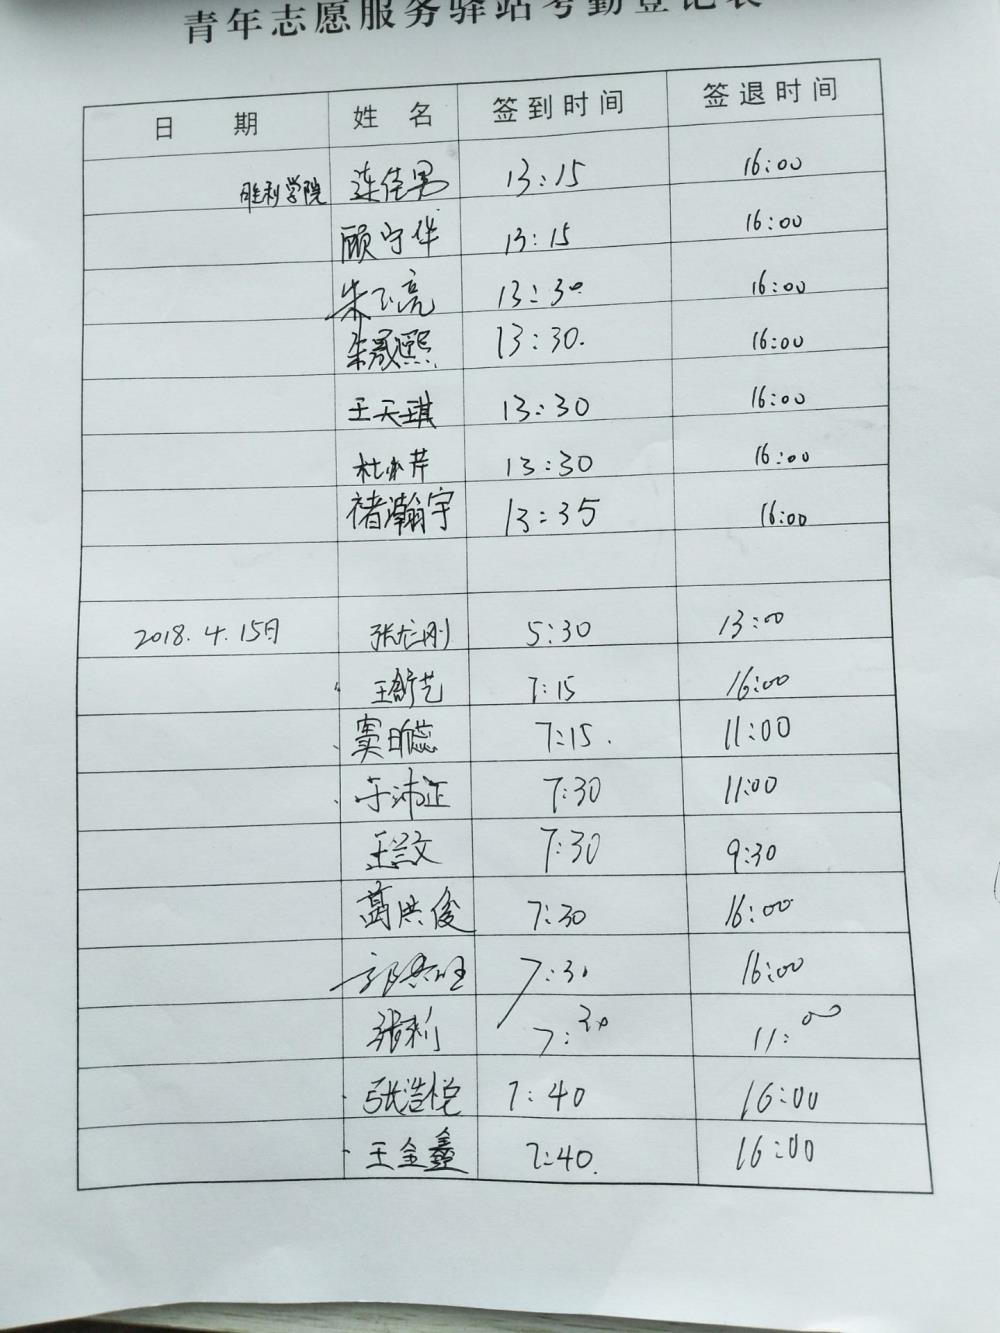 青年志愿服务驿站考勤登记表
日 期 姓 名 签到时间 签退时间
胜利学院 连佳男 13:15 16:00
顾宁华 13:15 16:00
朱玉亮 13:30 16:00
朱晟熙 13:30. 16:00
王天琪 13:30 16:00
杜小芹 13:30 16:00
褚瀚宇 13:35 16:00
2018.4.15日 张龙刚 5:30 13:00
王舒艺 7:15 16:00
窦昕蕊 7:15. 11:00
于沛正 7:30 11:00
王兰文 7:30 9:30
葛洪俊 7:30 16:00
7:30 16:00
张利 7:30 11:00
张浩悦 7:40 16:00
王金鑫 7:40. 16:00